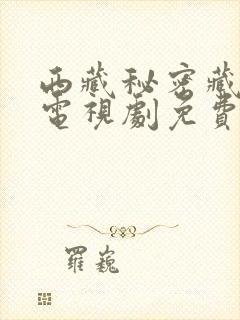 西藏秘密藏
電視劇免費
羅巍